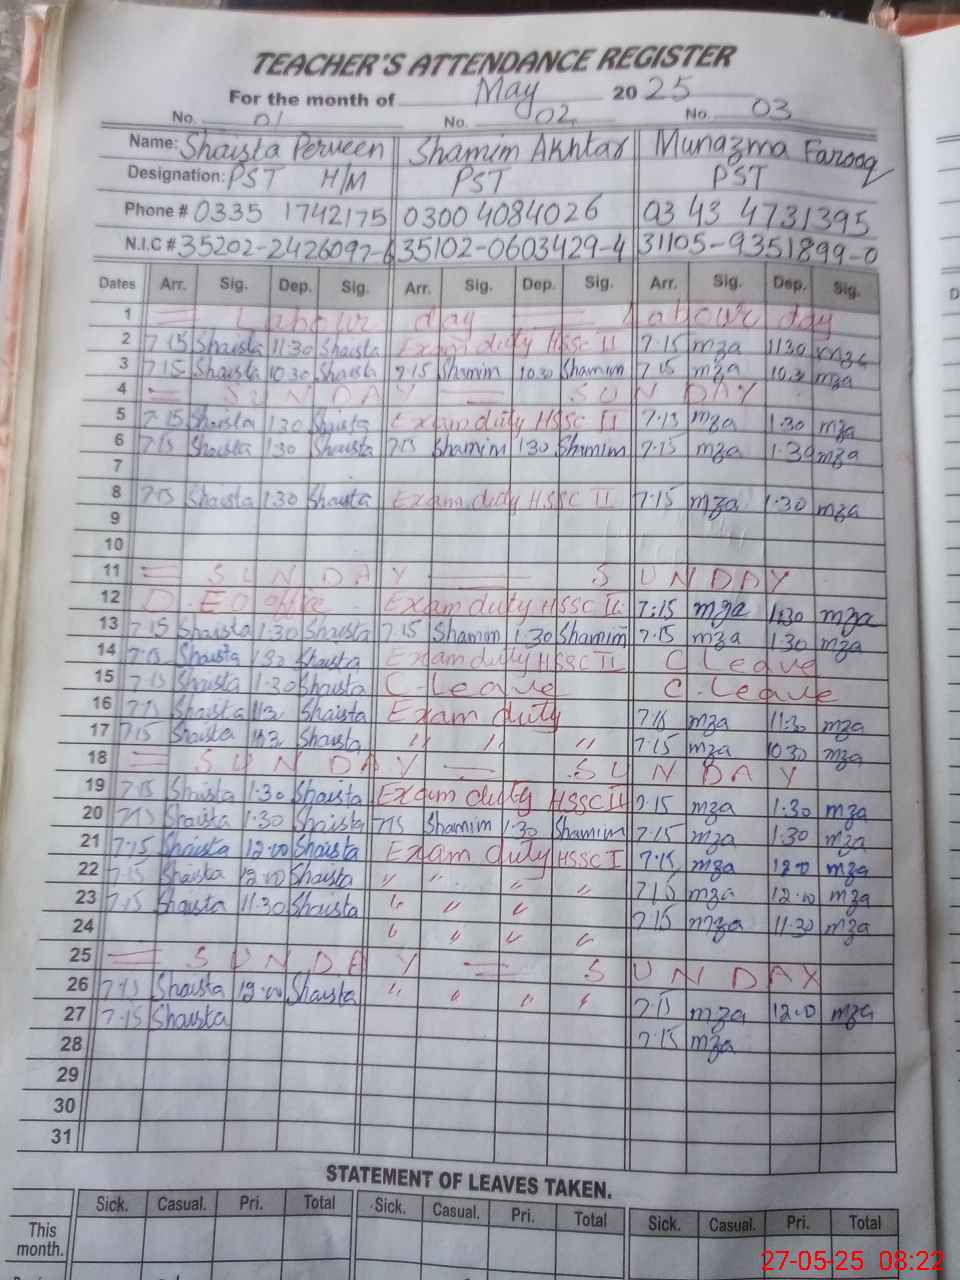 TEACHER'S ATTENDANCE REGISTER
For the month of May 2025
No. 01 No. 02 No. 03
Name: Shaista Perveen Shamim Akhtar Munazma Farooq
Designation: PST H/M PST PST
Phone # 0335 1742175 0300 4084026 03 43 4731395
N.I.C # 35202-2426097-6 35102-0603429-4 31105-9351899-0
Dates Arr. Sig. Dep. Sig. Arr. Sig. Dep. Sig. Arr. Sig. Dep. Sig.
1 = Labour day = Labour day
2 7-15 Shaista 11:30 Shaista Exam duty HSSC II 7-15 mza 1130 mza
3 7-15 Shaista 10.30 Shaista 7-15 Shamim 10.30 Shamim 7-15 mza 10.30 mza
4 = SUNDAY = SUNDAY
5 7-15 Shaista 1:30 Shaista Exam duty HSSC II 7-15 mza 1.30 mza
6 7-15 Shaista 1:30 Shaista 7-15 Shamim 1:30 Shamim 7-15 mza 1.30 mza
7
8 7-15 Shaista 1:30 Shaista Exam duty HSSC II 7-15 mza 1.30 mza
9
10
11 = SUNDAY = SUNDAY
12 D.EO office Exam duty HSSC II 7:15 mza 1:30 mza
13 7-15 Shaista 1:30 Shaista 7-15 Shamim 1.30 Shamim 7-15 mza 1.30 mza
14 7-15 Shaista 1:30 Shaista Exam duty HSSC II C Leave
15 7-15 Shaista 1:30 Shaista C-Leave C-Leave
16 7-15 Shaista Shaista Exam duty 7-15 mza 11:30 mza
17 7-15 Shaista Shaista " " " 7-15 mza 10 30 mza
18 = SUNDAY = SUNDAY
19 7-15 Shaista 1:30 Shaista Exam duty HSSC II 7-15 mza 1:30 mza
20 7-15 Shaista 1:30 Shaista 7-15 Shamim 1:30 Shamim 7-15 mza 1.30 mza
21 7-15 Shaista 12:00 Shaista Exam duty HSSC I 7-15 mza 1200 mza
22 7-15 Shaista 12:00 Shaista " " " " 7-15 mza 12.00 mza
23 7-15 Shaista 11:30 Shaista " " " 7-15 mza 11.30 mza
24 " " " "
25 = SUNDAY = SUNDAY
26 7-15 Shaista 12:00 Shaista " " " " 7-15 mza 12.00 mza
27 7-15 Shaista 7-15 mza
28
29
30
31
STATEMENT OF LEAVES TAKEN.
Sick. Casual. Pri. Total Sick. Casual. Pri. Total Sick. Casual. Pri. Total
This
month.
27-05-25 08:22